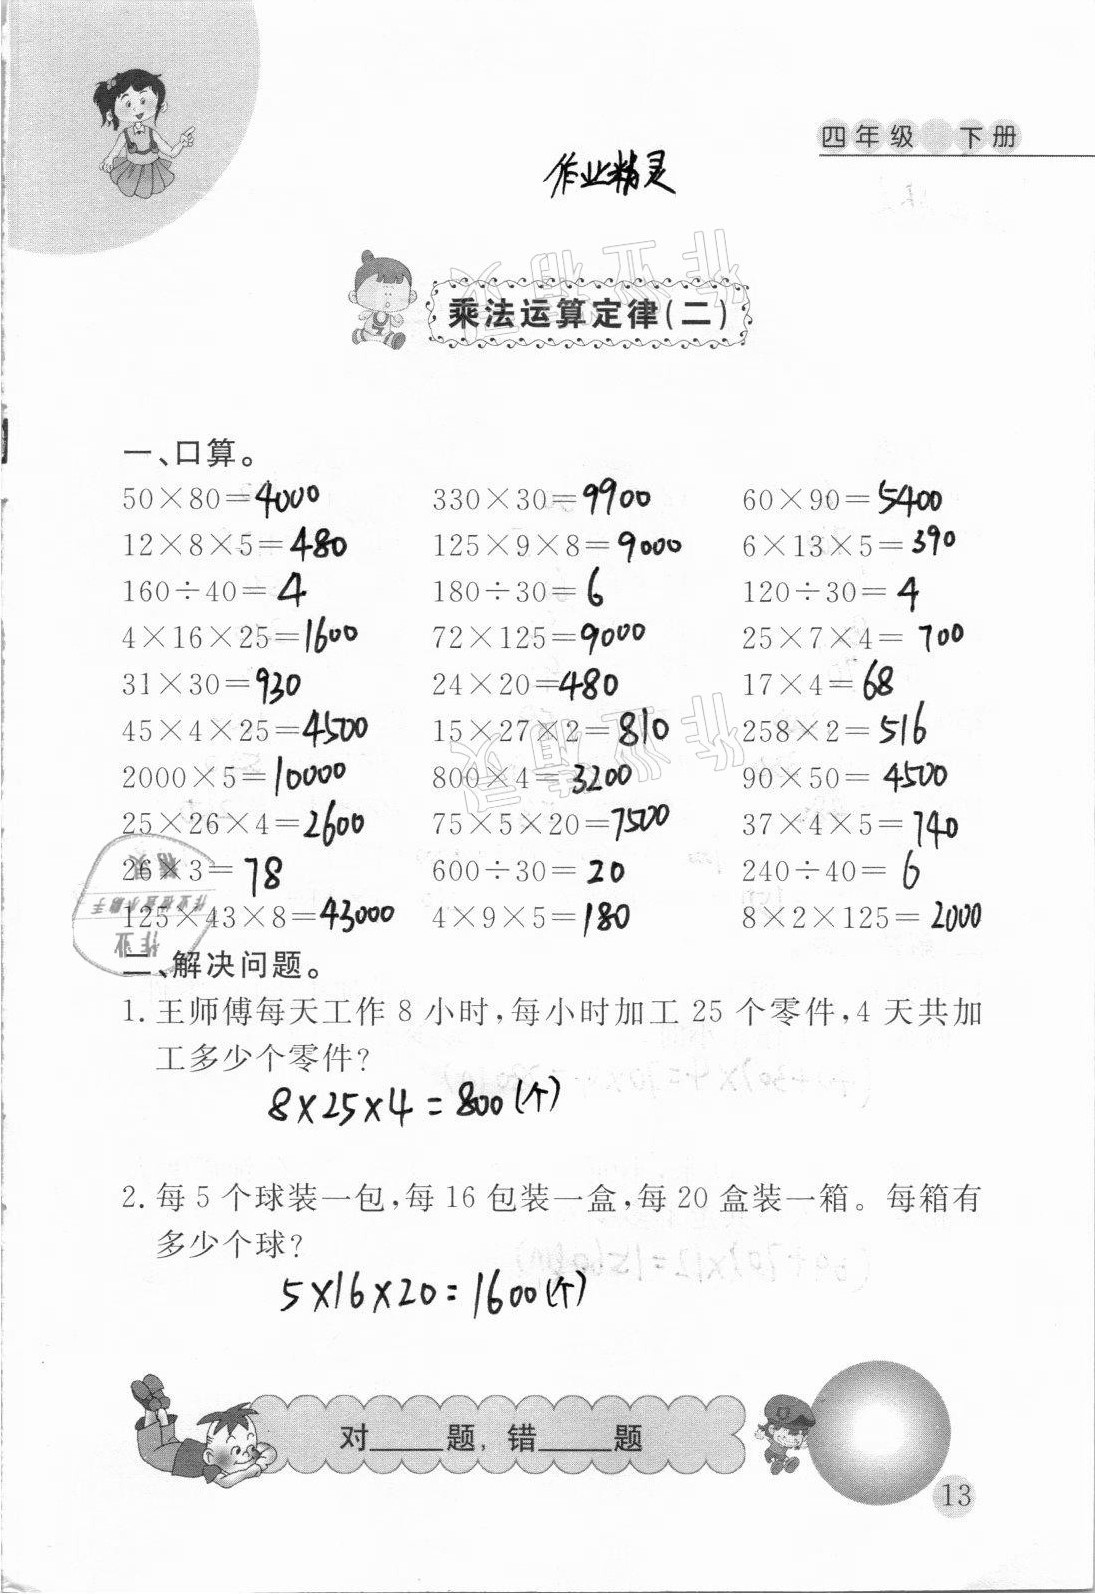 四年级 下册
作业精灵
乘法运算定律(二)
一、口算。
50×80=4000 330×30=9900 60×90=5400
12×8×5=480 125×9×8=9000 6×13×5=390
160÷40=4 180÷30=6 120÷30=4
4×16×25=1600 72×125=9000 25×7×4=700
31×30=930 24×20=480 17×4=68
45×4×25=4500 15×27×2=810 258×2=516
2000×5=10000 800×4=3200 90×50=4500
25×26×4=2600 75×5×20=7500 37×4×5=740
26×3=78 600÷30=20 240÷40=6
125×43×8=43000 4×9×5=180 8×2×125=2000
二、解决问题。
1. 王师傅每天工作 8 小时,每小时加工 25 个零件,4 天共加
工多少个零件?
8×25×4=800(个)
2. 每 5 个球装一包,每 16 包装一盒,每 20 盒装一箱。每箱有
多少个球?
5×16×20=1600(个)
对____题,错____题
13